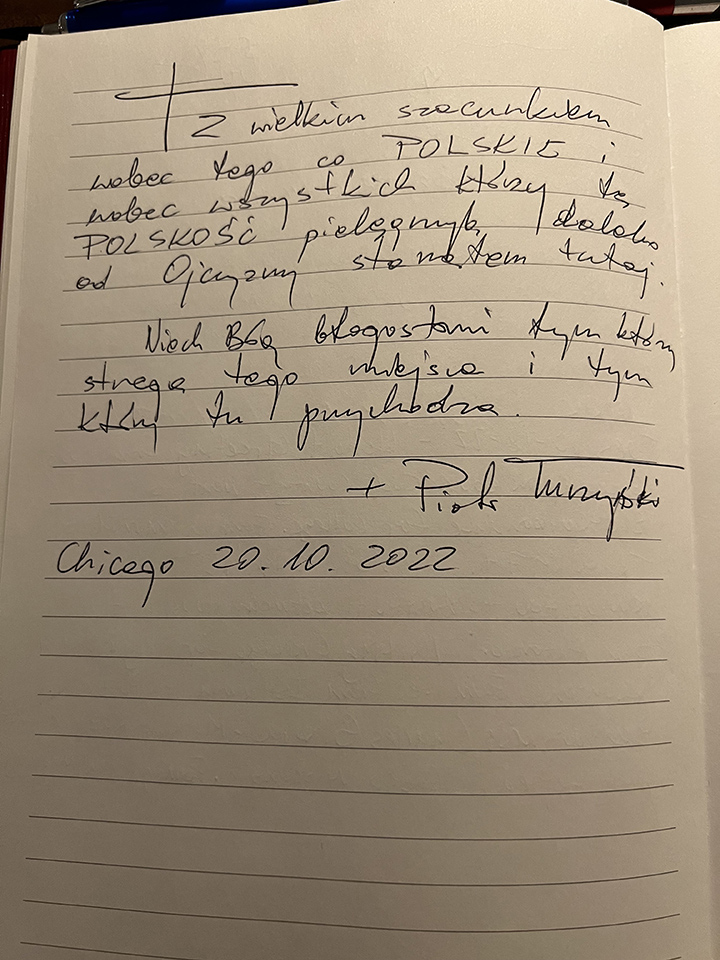 Z wielkim szacunkiem
wobec tego co POLSKIE i
wobec wszystkich którzy tę
POLSKOŚĆ pielęgnują daleko
od Ojczyzny tutaj.
Niech Bóg błogosławi tym którzy
strzegą tego miejsca i tym
którzy tu przychodzą.
+ Piotr Turzyński
Chicago 20.10.2022